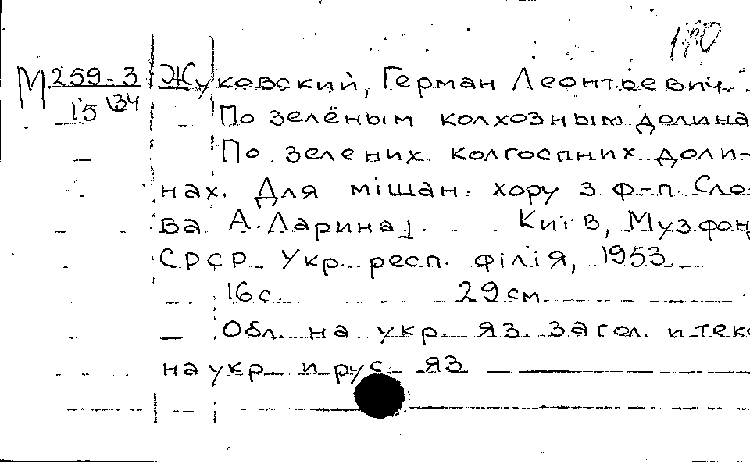 180
М 259-3 Жуковский, Герман Леонтьевич.
15 134
По зелёным колхозным долина
По зелених колгоспних доли-
нах. Для мішан. хору з ф-п. Сло-
ва А. Ларина]. Київ, Музфон
СРСР. Укр. респ. філія, 1953
16 с. 29 см.
Обл. на укр. яз. Загол. и тек
на укр. и рус. яз.